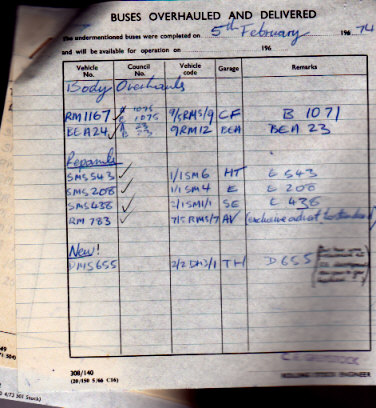 BUSES OVERHAULED AND DELIVERED
The undermentioned buses were completed on 5th February 196 74
and will be available for operation on 196
Vehicle No. Council No. Vehicle code Garage Remarks
Body Overhauls
RM1167 1075 1075 9/5RM5/9 CF B 1071
BEA24 A 23 B 23 9RM12 BEA BEA 23
Repaints
SMS543 1/1SM6 HT E 543
SMS206 1/1SM4 E E 206
SMS436 2/1SM1/1 SE E 436
RM783 7/5RM5/7 AV (exclusive advt
New!
DMS655 2/2 DM3/1 TH D 655
308/140
(20/150 5/66 C16)
ROLLING STOCK ENGINEER
4/73 501 Stock)